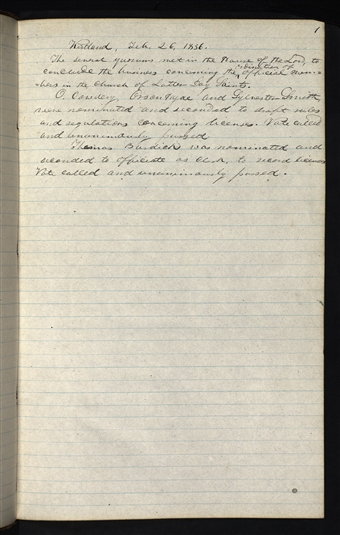 1
Kirtland, Feb. 26, 1836.
The several quorums met in the Name of the Lord, to
conclude the business concerning the ordination of official mem-
bers in the Church of Latter Day Saints.
O. Cowdery Orson Hyde and Sylvester Smith
were nominated and seconded to draft rules
and regulations concerning licenses. Vote called
and unanimously passed
Thomas Burdick was nominated and
seconded to officiate as Clerk, to record licenses
Vote called and unanimously passed.